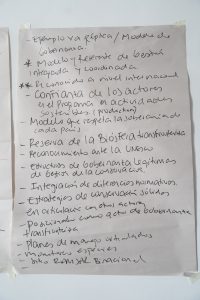 - Ejemplo
gobernanza.
* Modelo y referente de gestión
integrada y coordinada
* Reconocido a nivel internacional
- Confianza de los actores
y el Programa en actividades
sostenibles (productivas)
- Modelo que respeta la soberanía de
cada país
- Reserva de la Biósfera transfronteriza
- reconocimiento ante la Unesco
- Estructura de gobernanza legítimas
de gestión de la conservación.
- Integración de diferencias normativas.
- Estrategias de conservación sólidas
en articulación con otros actores
- como actor de gobernanza
transfronteriza
- Planes de manejo articulados
- monitoreo especies
- Sitio RAMSAR Binacional